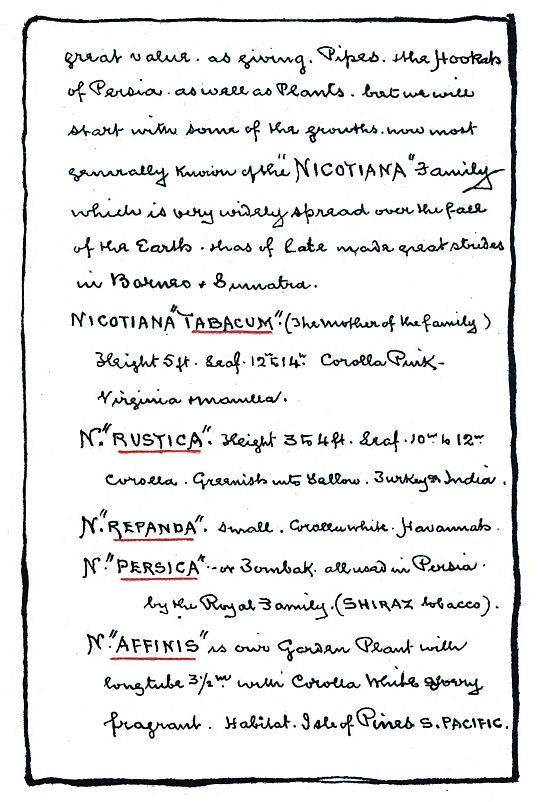 great value. as giving. Pipes. the Hookah
of Persia. as well as Plants. but we will
start with some of the growths. now most
generally known of the "NICOTIANA" Family
which is very widely spread over the face
of the Earth. & has of late made great strides
in Borneo & Sumatra.
NICOTIANA "TABACUM". (The Mother of the family)
Height 5 ft. Leaf. 12 to 14" Corolla Pink-
Virginia & Manilla.
N. "RUSTICA". Height 3 to 4 ft. Leaf. 10 to 12
Corolla. Greenish into Yellow. Turkey & India.
N. "REPANDA". Small. Corolla white. Havannah.
N. "PERSICA" - or Tombak. all used in Persia.
by the Royal Family. (SHIRAZ tobacco).
N. "AFFINIS" is our Garden Plant with
long tube 3½ with Corolla White & very
fragrant. Habitat. Isle of Pines S. PACIFIC.